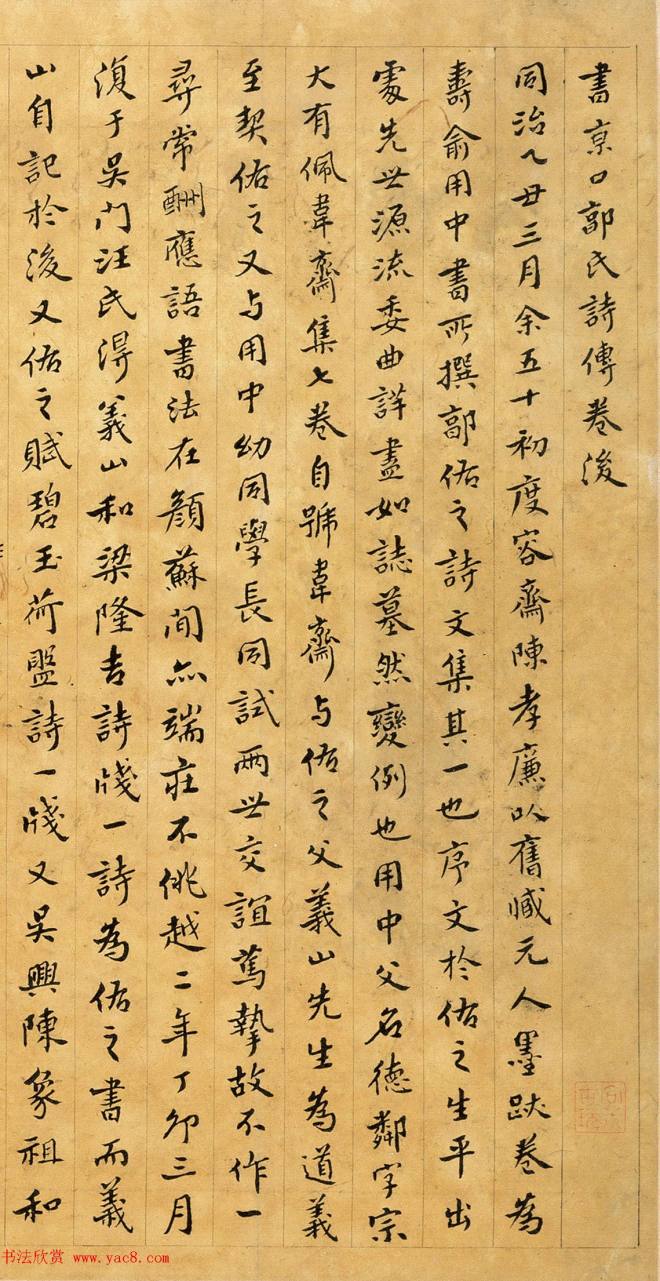 書京口郭氏詩傳卷後
同治乙丑三月余五十初度容齋陳孝廉以舊臧元人墨跡卷為
壽俞用中書所撰郭佑之詩文集其一也序文於佑之生平出
處先世源流委曲詳盡如誌墓然變例也用中父名德鄰字宗
大有佩韋齋集七卷自號韋齋与佑之父義山先生為道義
至契佑之又与用中幼同學長同試兩世交誼篤摯故不作一
尋常酬應語書法在顏蘇間亦端莊不佻越二年丁卯三月
復于吳門汪氏得義山和梁隆吉詩牋一詩為佑之書而義
山自記於後又佑之賦碧玉荷盤詩一牋又吳興陳象祖和
书法欣赏 www.yac8.com